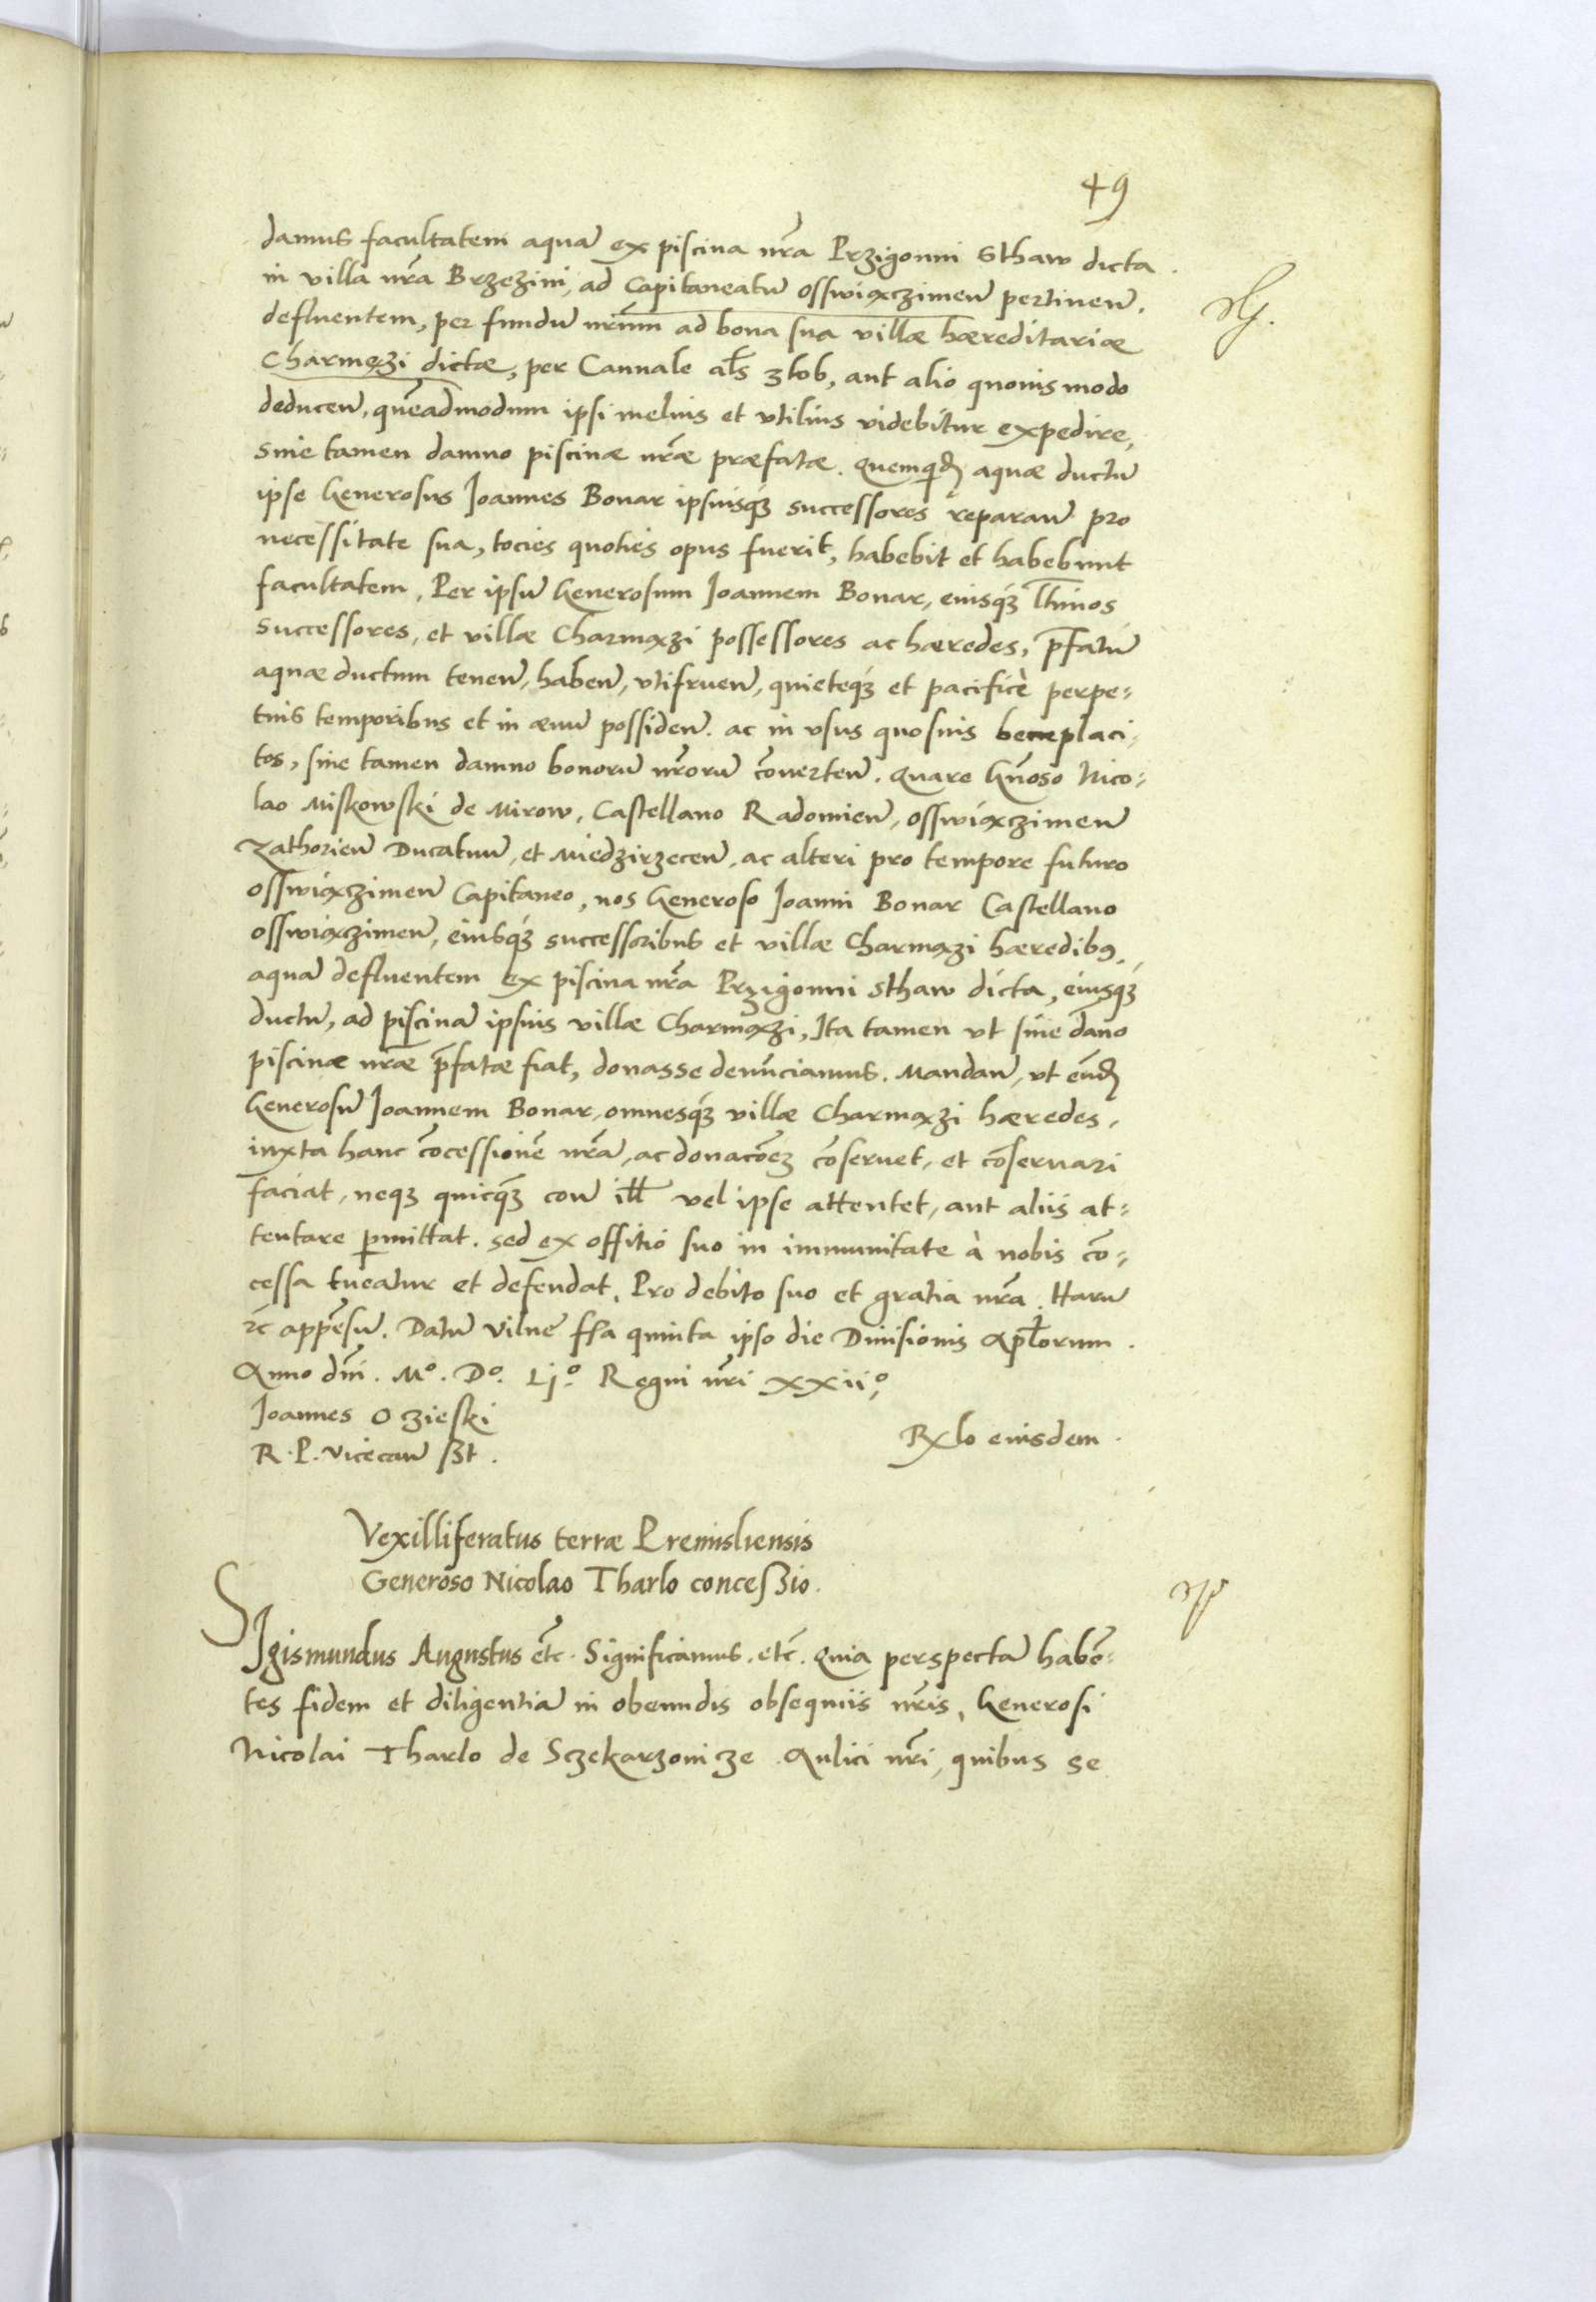 49
damus facultatem aquā ex piscina nr̄a Przigonni Sthaw dicta
in villa nr̄a Brzezini, ad Capitaneatū Osswiączimeñ pertineñ.
defluentem, per fundū nrūm ad bona sua villæ hæreditariæ
Charmęzi dictæ, per Cannale al̄s zlob, aut alio quouis modo
deduceñ, quēadmodum ipsi melius et vtilius videbitur expedire,
sine tamen damno piscinæ nr̄æ præfatæ. Quemq̄d aquæ ductū
ipse Generosus Joannes Bonar ipsiusq́ꝫ successores reparañ pro
necessitate sua, tocies quoties opus fuerit, habebit et habebunt
facultatem. Per ipsū Generosum Joannem Bonar, eiusq́ꝫ l̄timos
successores, et villæ Charmązi possessores ac hæredes, p̄fatū
aquæ ductum teneñ, habeñ, vtifrueñ, quieteq́ꝫ et pacificè perpe=
tuis temporibus et in æuū possideñ. ac in vsus quosuis beneplaci=
tos, sine tamen damno bonorū nr̄orū cōuerteñ. Quare Gn̄oso Nico=
lao Miskowski de Mirow, Castellano Radomieñ, Osswiączimeñ
Zathorieñ Ducatuū, et Miedzirzeceñ, ac alteri pro tempore futuro
Osswiączimeñ Capitaneo, nos Generoso Joanni Bonar Castellano
Osswiączimeñ, eiusq́ꝫ successoribus et villæ Charmązi hæredibꝰ,
aquā defluentem ex piscina nr̄a Przigonni Sthaw dicta, eiusq́ꝫ
ductū, ad piscinā ipsius villæ Charmązi, Ita tamen vt sine dāno
piscinæ nr̄æ p̄fatæ fiat, donasse denūciamus. Mandañ, vt eūd
Generosū Joannem Bonar, omnesq́ꝫ villæ Charmązi hæredes,
iuxta hanc cōcessionē nr̄ā, ac donacōeꝫ cōseruet, et cōseruari
faciat, neqꝫ quicq̄ꝫ coñ ill̄ vel ipse attentet, aut aliis at=
tentare p̄mittat. Sed ex offitio suo in immunitate à nobis cō=
cessa tueatur et defendat. Pro debito suo et gratia nr̄a. Harū
ꝛc̄ appēsū. Datū Vilnę f̄ia quinta ipso die Diuisionis Apl̄orum.
Anno dn̄i. Mº. Dº. Ljº. Regni nr̄i xxiiº,
Joannes Oczieski
R. P. Vicecañ sßt.
Rx̄lo eiusdem.
Vexilliferatus terræ Premisliensis
Generoso Nicolao Tharlo conceßio.
SIgismundus Augustus etc̄. Significamus. etc̄. Quia perspectā habē=
tes fidem et diligentiā in obeundis obsequiis nr̄is, Generosi
Nicolai Tharlo de Sczekarzouicze Aulici nr̄i, quibus se